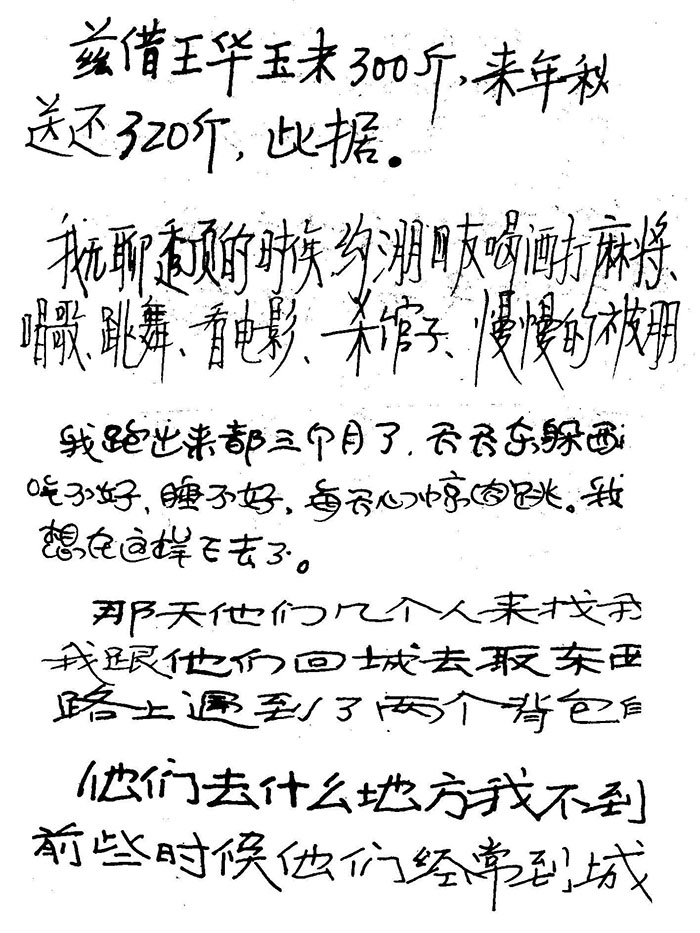 兹借王华玉米300斤,来年秋
送还320斤,此据。
我无聊透顶的时候,约朋友喝酒打麻将、
唱歌、跳舞、看电影、杀馆子、慢慢的被朋
我跑出来都三个月了,天天东躲西
吃不好,睡不好,每天心惊肉跳。我
想在这样下去了。
那天他们几个人来找我
我跟他们回城去取东西
路上遇到了两个背包
他们去什么地方我不到
前些时候他们经常到城